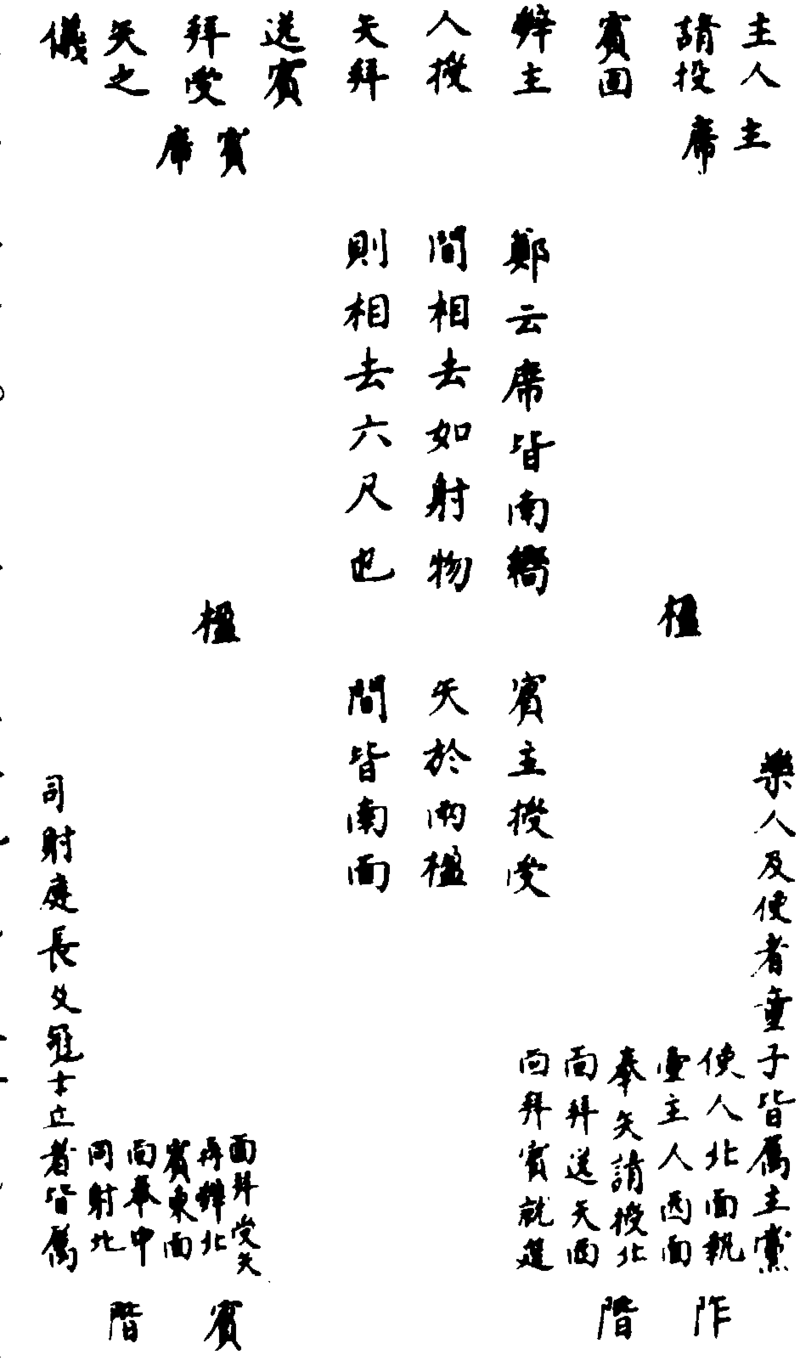 主人
請投
賓固
辭主
人授
矢拜
送賓
拜受
矢之
儀
主
席
賓
席
鄭云席皆南嚮
間相去如射物
則相去六尺也
楹
楹
賓主授受
矢於兩楹
間皆南面
樂人及使者童子皆屬主黨
使人北面執
壷主人西面
奉矢請投北
面拜送矢西
向拜賓就筵
阼
階
面拜受矢
再辭北
賓東面
面奉中
司射北
司射庭長及冠士立者皆屬
賓
階